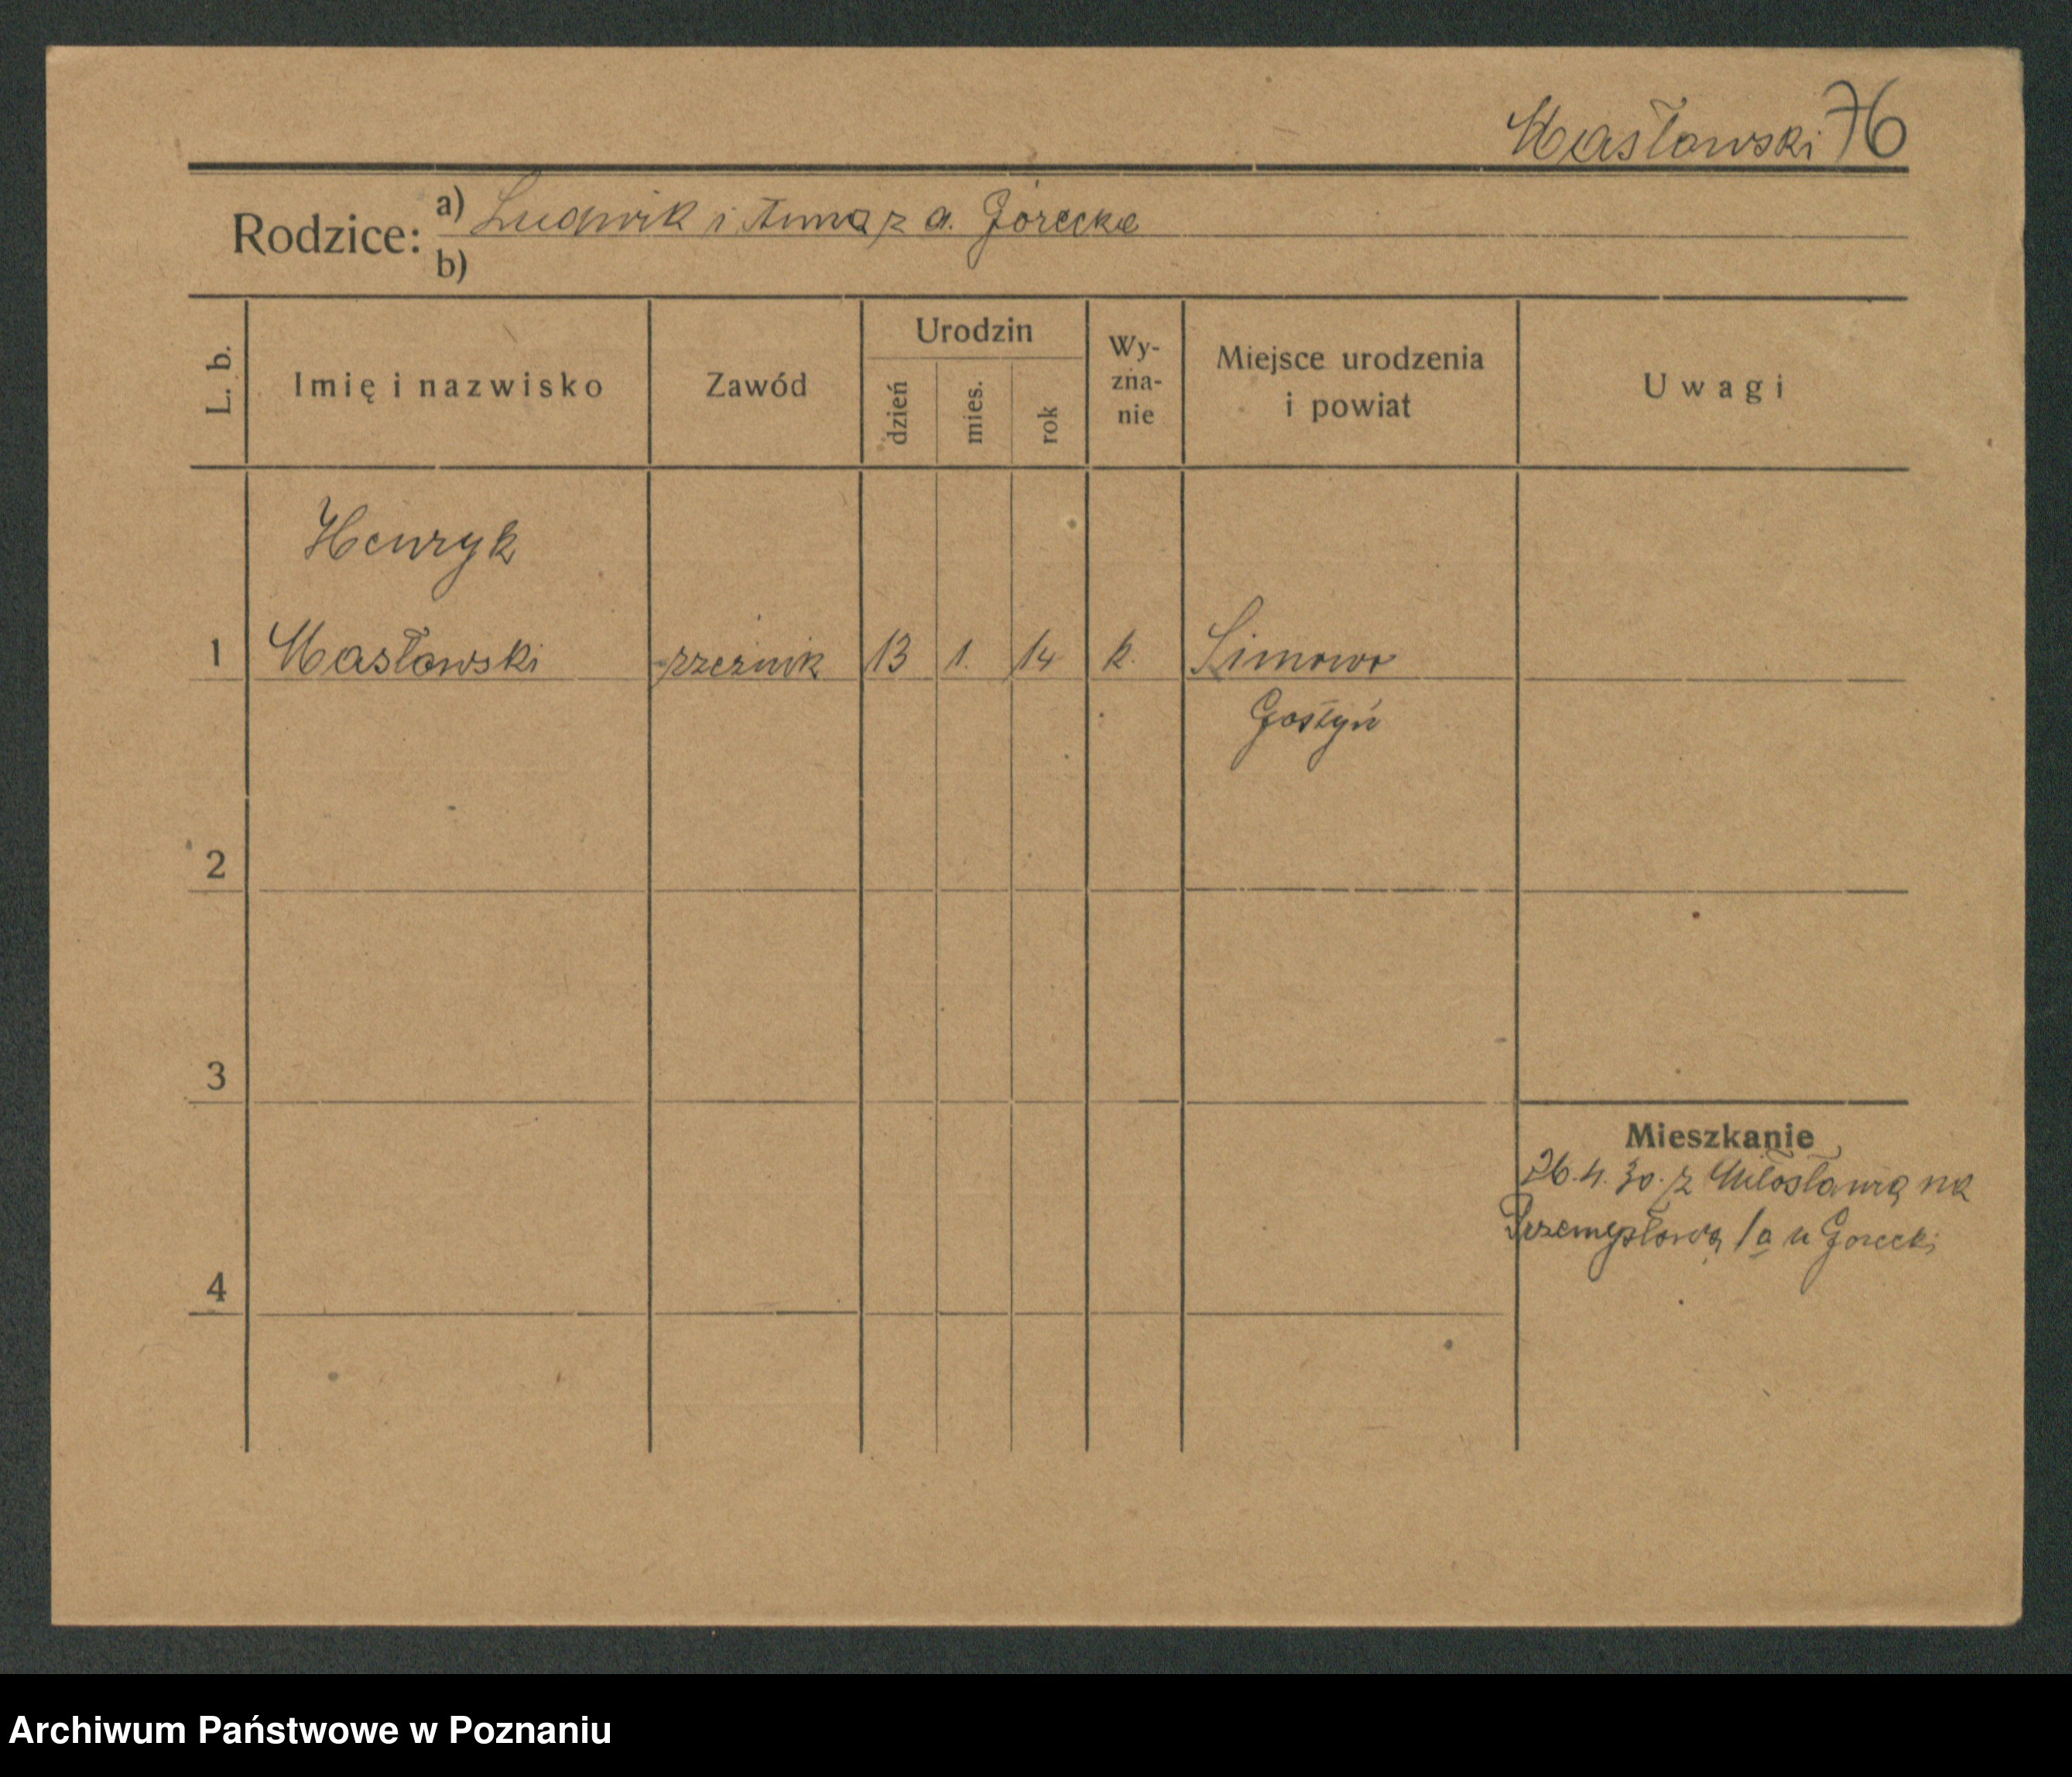 Masłowski 76
Rodzice: a) Ludwik i Anna z d. Górecka
b)
L. b.
Imię i nazwisko
Zawód
Urodzin
dzień
mies.
rok
Wy-
zna-
nie
Miejsce urodzenia
i powiat
Uwagi
Henryk
1 Masłowski rzeźnik 13 1. 14 k. Simowo
Gostyń
2
3
Mieszkanie
26.4.30. z Miłosławia na
Przemysłową 1a u Gorecki
4
Archiwum Państwowe w Poznaniu